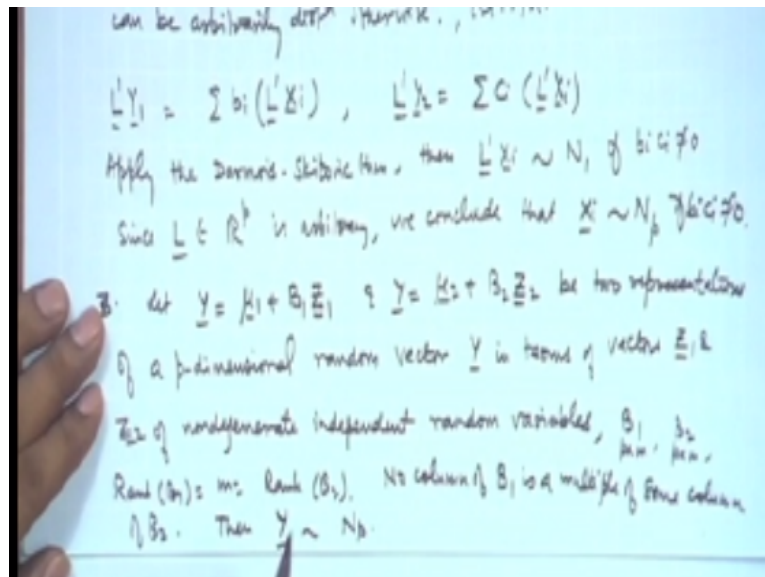 can be arbitrarily
L'Y1 = Σ bi (L'Xi) , L'Y2 = Σ Ci (L'Xi)
Apply the Darmois-Skitovic thm, then L'Xi ~ N1 if bi ci ≠ 0
Since L ∈ R^p is arbitrary, we conclude that Xi ~ Np if bi ci ≠ 0.
3. Let Y = μ1 + B1 Z1 & Y = μ2 + B2 Z2 be two representations
of a p-dimensional random vector Y in terms of vectors Z1 &
Z2 of nondegenerate independent random variables, B1 p×m, B2 p×m,
Rank (B1) = m = Rank (B2). No column of B1 is a multiple of some column
of B2. Then Y ~ Np.